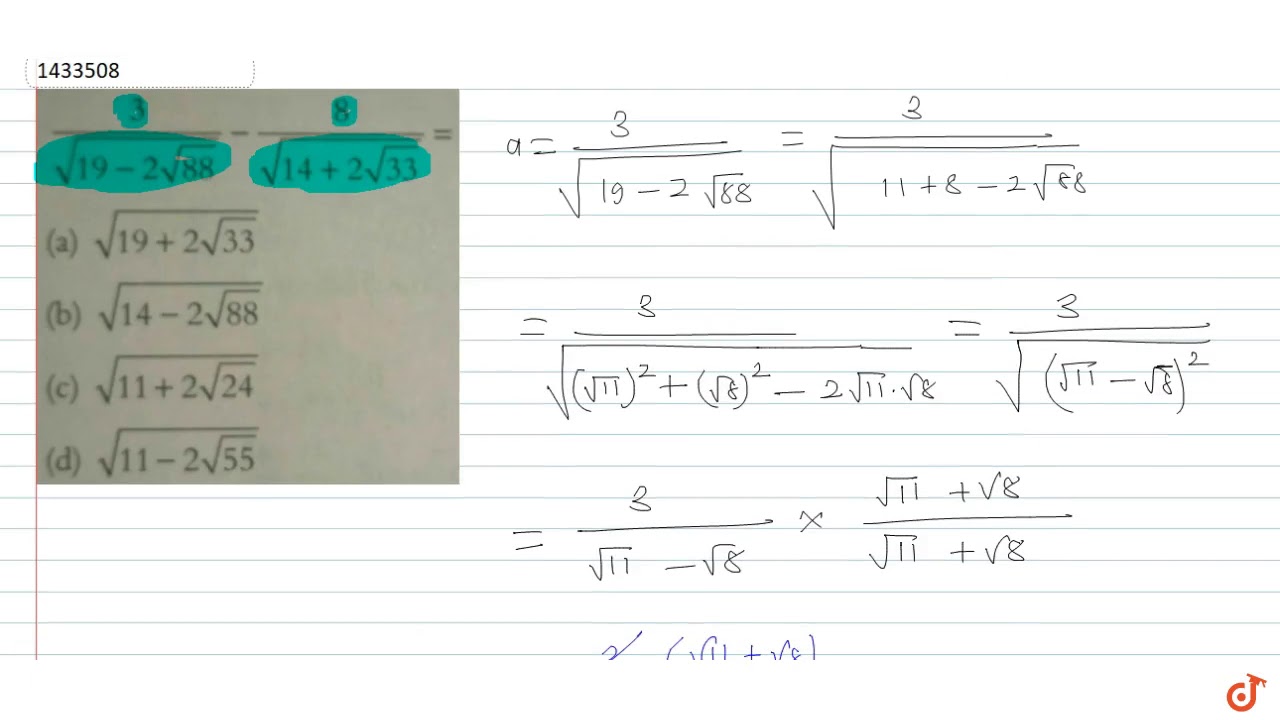 1433508
3/√(19 − 2√88) − 8/√(14 + 2√33) =
(a) √(19 + 2√33)
(b) √(14 − 2√88)
(c) √(11 + 2√24)
(d) √(11 − 2√55)
a = 3/√(19 − 2√88) = 3/√(11 + 8 − 2√88)
= 3/√((√11)² + (√8)² − 2√11·√8) = 3/√((√11 − √8)²)
= 3/(√11 − √8) × (√11 + √8)/(√11 + √8)
(√11 + √8)